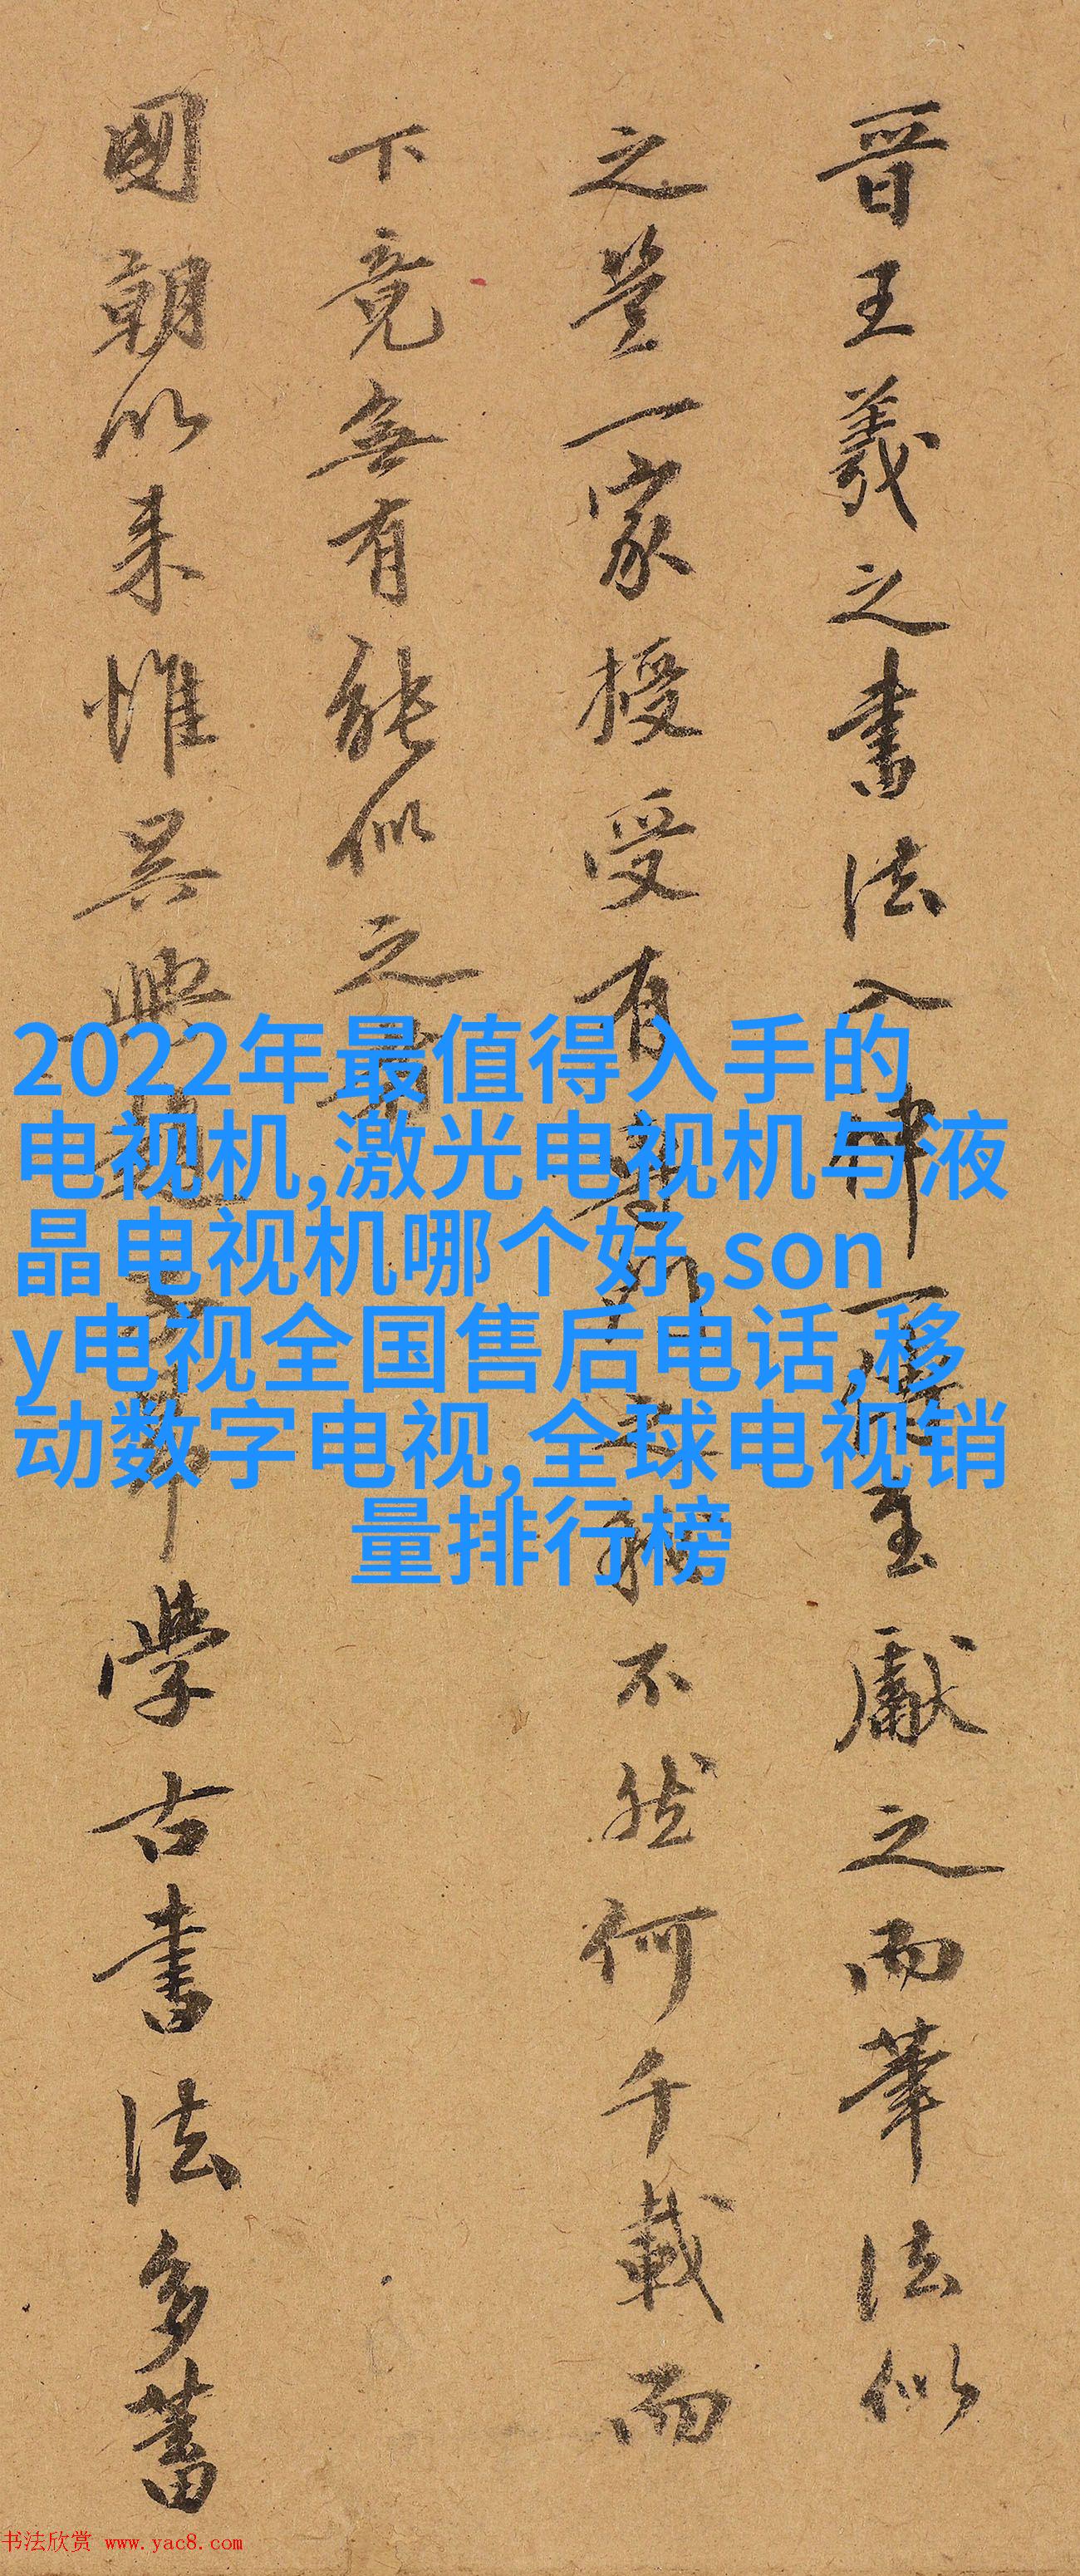 晋王羲之書法入神一傳至獻之而筆法似
之豈一家授受有不然何千載而
下竟無有能似之
國朝以来惟吴興趙學古書法多蓄
2022年最值得入手的
电视机,激光电视机与液
晶电视机哪个好,son
y电视全国售后电话,移
动数字电视,全球电视销
量排行榜
书法欣赏 www.yac8.com